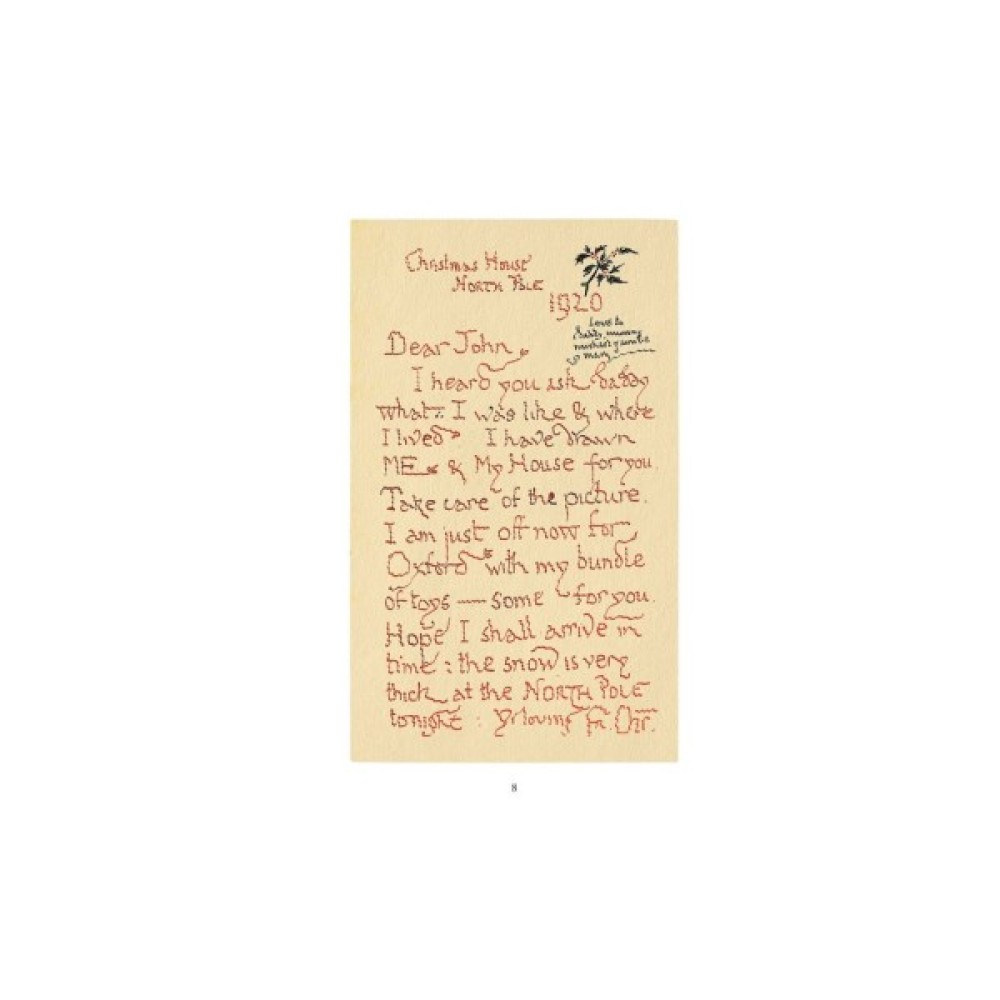 Christmas House
NORTH POLE
1920
Love to
daddy, mummy
michael & auntie
mary
Dear John,
I heard you ask daddy
what I was like & where
I lived. I have drawn
ME & My House for you.
Take care of the picture.
I am just off now for
Oxford with my bundle
of toys — some for you.
Hope I shall arrive in
time : the snow is very
thick at the NORTH POLE
tonight : Yr loving Fr. Chr.
8